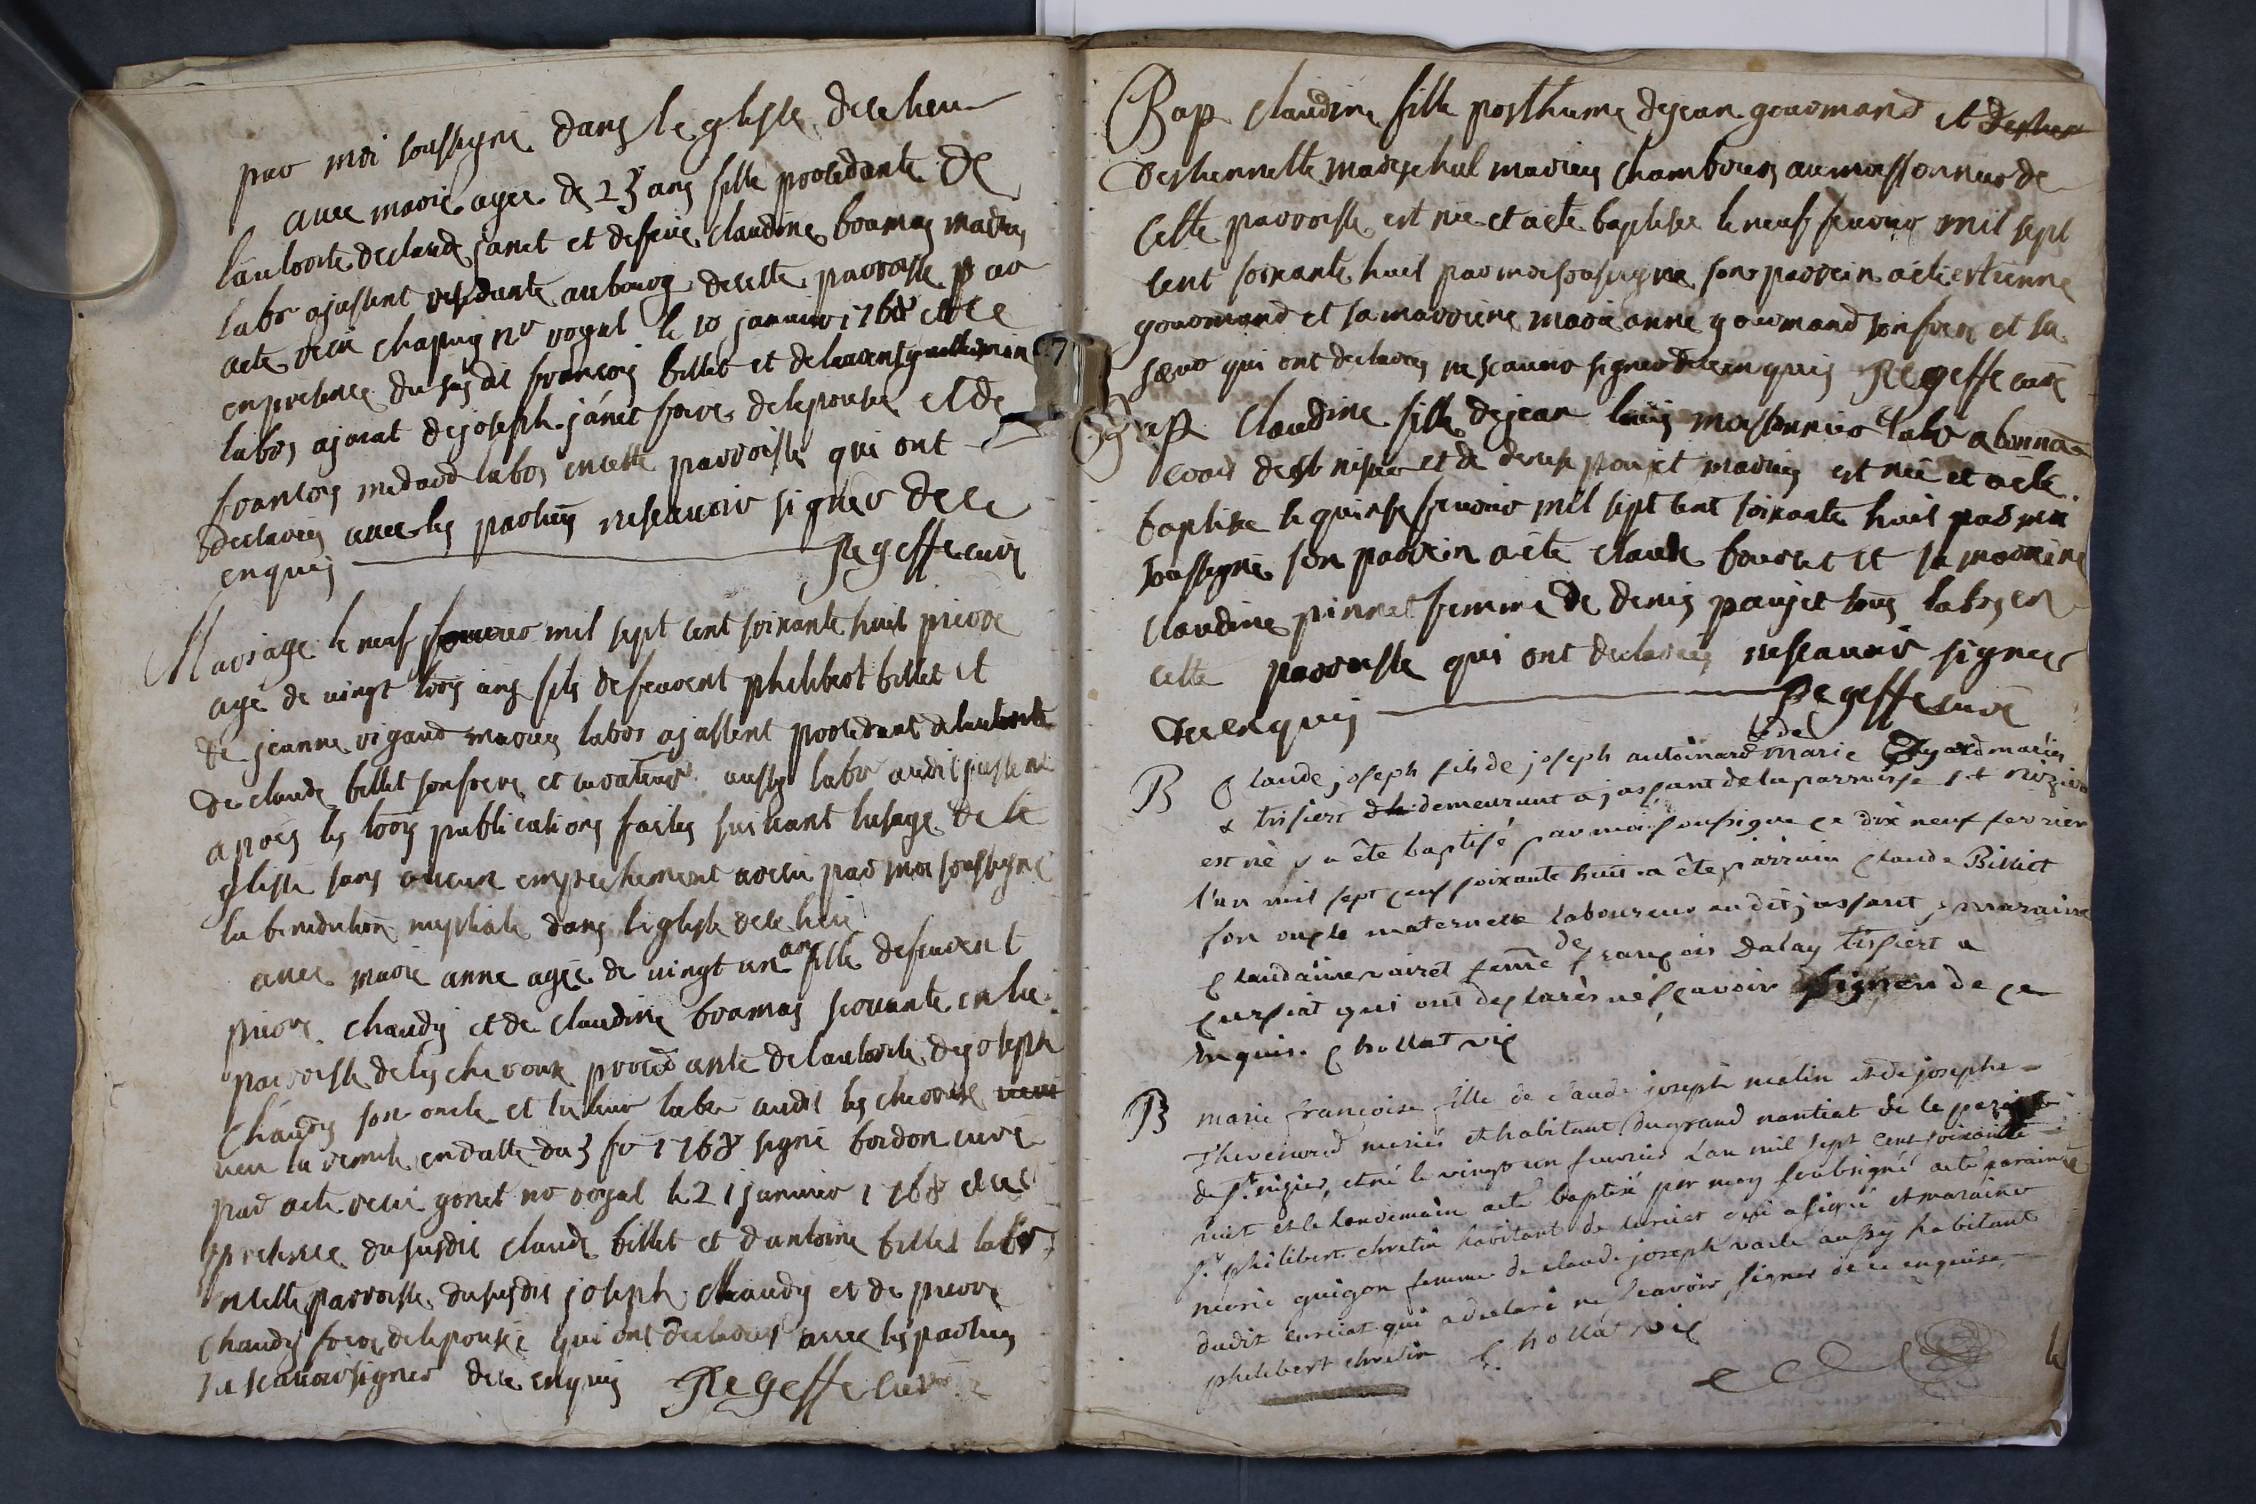 par moi soussigné dans leglisse de ce lieu
avec marie agee de 23 ans fille procedante de
lautorite de claude janet et de feüe claudine bramas mariés
labr ajassent residante au bourg de cette parroisse par
acte recu chapuy nre royal le 10 janvier 1768 et ce
en presence du susdit françois billet et de laurent guillermin
labrs ajacat de joseph janet frere de lepouse et de
françois medard labrs en cette parroisse qui ont
declarés avec les parties ne scavoir signer de ce
enquis Regeffe curé
Mariage le neuf fevrier mil sept cent soixante huit pierre
agé de vingt trois ans fils de feu vent philibert billet et
de jeanne rigaud mariés labrs ajassent procedant de lautorite
de claude billet son frere et curateur aussy labr audit jassent
apres les trois publications faites suivant lusage de le
glisse sans aucun empechement a recu par moi soussigné
la benediction nuptiale dans leglisse de ce lieu
avec marie anne agée de vingt un ans fille de feu vent
pierre chaudy et de claudine bramas servante en la
parroisse de les cheroux procedante de lautorite de joseph
chaudy son oncle et tuteur labr audit les cheroux
veu la remise en datte du 3 fr 1768 signé bordon curé
par acte recu gonet nre royal le 21 janvier 1768 et ce
en presence du susdit claude billet et dantoine billet labrs
en cette parroisse du susdit joseph chaudy et de pierre
chaudy frere de lepousée qui ont declarés avec les parties
ne scavoir signer de ce enquis Regeffe curé
7
Bap claudine fille posthume de jean gourmand et
destiennette mareschal mariés chambriers au moissonnier de
cette parroisse est née et a eté baptisée le neuf fevrier mil sept
cent soixante huit par moi soussigné son parrein a eté estienne
gourmand et sa marreine marie anne gourmand son frere et sa
sœur qui ont declarés ne scavoir signer de ce enquis Regeffe curé
Bap claudine fille de jean louis moissonnier labr a bonna
cour de st nisier et de denise poujet mariés est née et a eté
baptisée le quinse fevrier mil sept cent soixante huit par moi
soussigné son parrein a eté claude bouret et sa marreine
claudine pinnet femme de denis paujet tous labrs en
cette parroisse qui ont declarés ne scavoir signer
de ce enquis Regeffe curé
B Claude joseph fils de joseph antoinard & de marie mariés
& tissiert demeurant a jassant de la parroisse st nizier
est né y a ête baptisé par moi soussigné ce dix neuf fevrier
l'an mil sept cens soixante huit . a ête parrain claude Billiet
son oncle maternelle laboureur au dit jassant & maraine
claudaine vairet femme de françois dalay tissiert a
cursiat qui ont declarés ne sçavoir signer de ce
enquis . Chollat vic
B marie françoise fille de claude joseph melin et de josephe
Thevenard mariés et habitant du grand nantiat de le paroisse
de st nizier, et né le vingt un feuvrier l'an mil sept cent soixante
huit et le lendemain aeté baptisé par moy soubsigné aeté parain
sr philibert chretin habitant de cursiat qui a signé et maraine
marie guigon femme de claude joseph vaile aussy habitant
dudit cursiat qui a declaré ne scavoir signer de ce enquise
philibert chretin Chollat vic